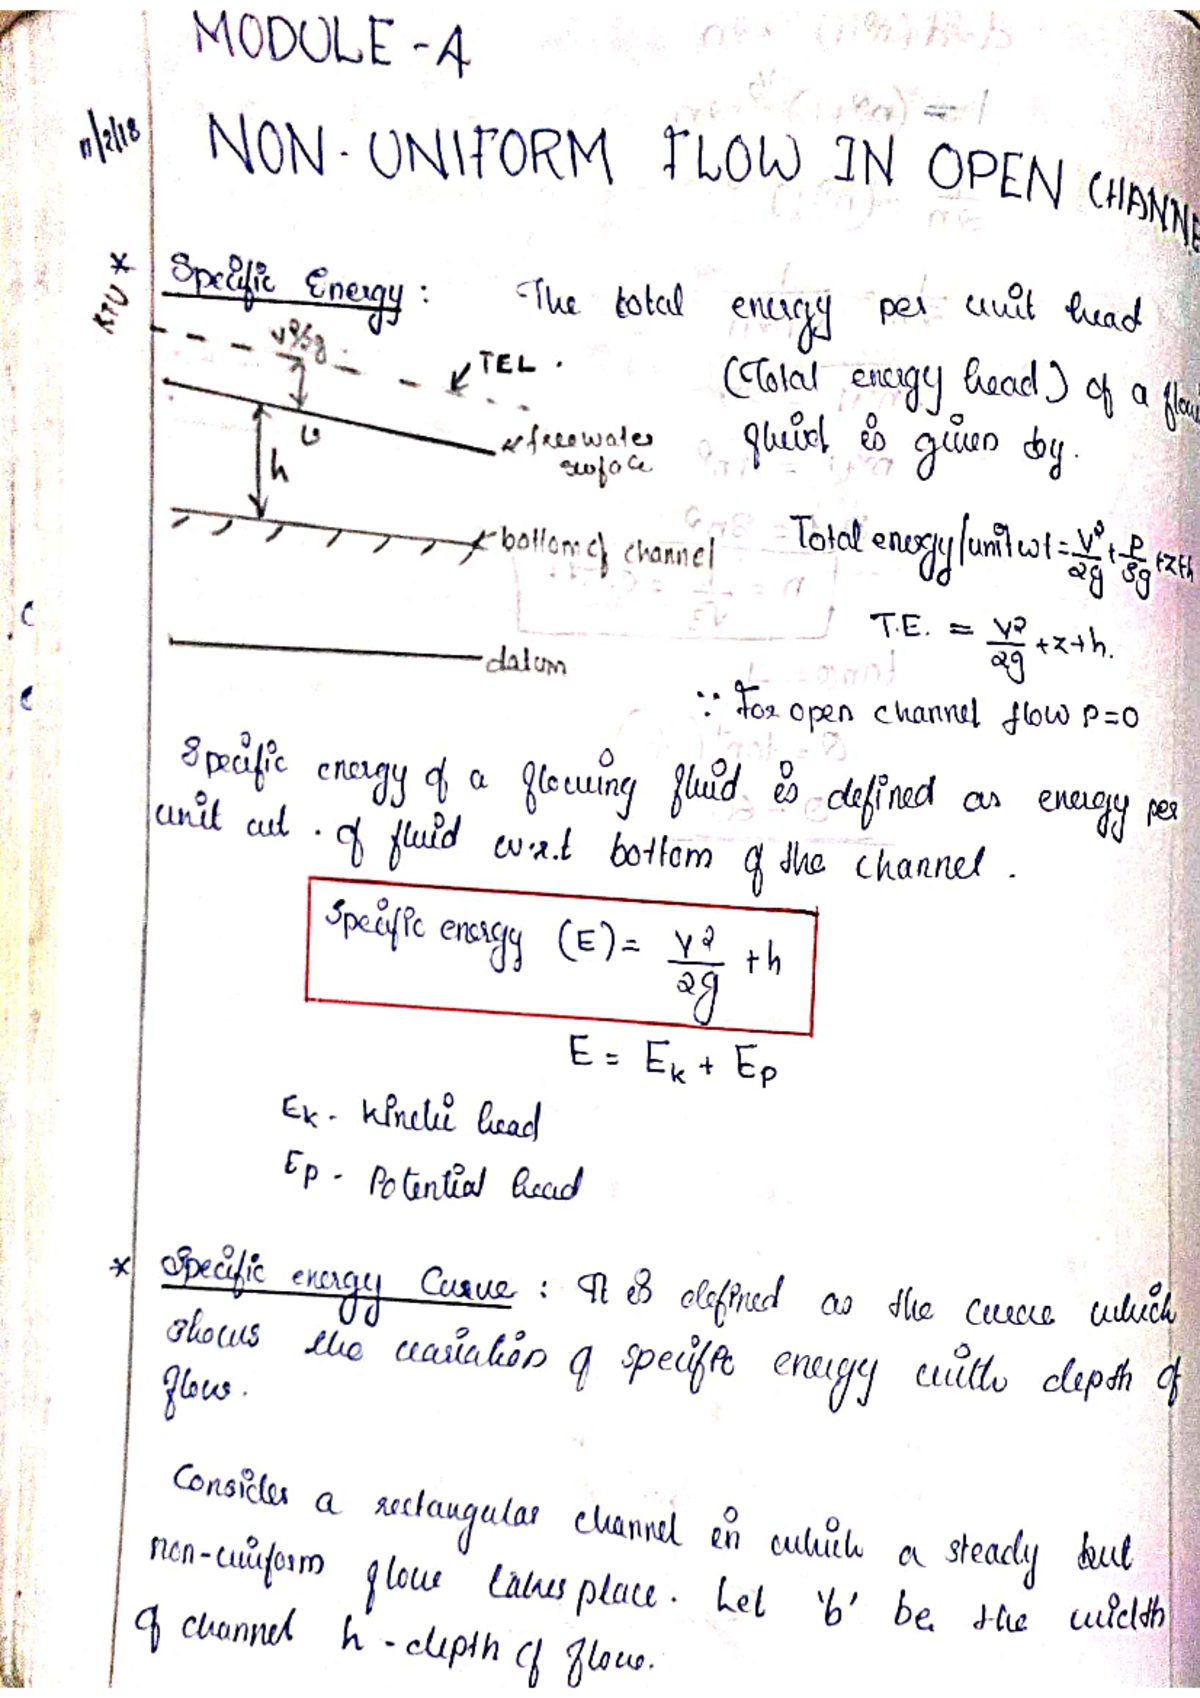 MODULE - 4
11/2/18
NON-UNIFORM FLOW IN OPEN CHANNE
KTU *
Specific Energy : The total energy per unit head
(Total energy head) of a flowi
fluid is given by.
v²/2g
TEL.
h
free water
surface
bottom of channel
datum
Total energy/unit wt = V²/2g + P/ρg + z+h
T.E. = V²/2g + z+h.
∵ For open channel flow P=0
Specific energy of a flowing fluid is defined as energy per
unit wt. of fluid w.r.t bottom of the channel.
Specific energy (E) = V²/2g + h
E = Ek + Ep
Ek - Kinetic head
Ep - Potential head
* Specific energy Curve : It is defined as the curve which
shows the variation of specific energy with depth of
flow.
Consider a rectangular channel in which a steady but
non-uniform flow takes place. Let 'b' be the width
of channel h - depth of flow.